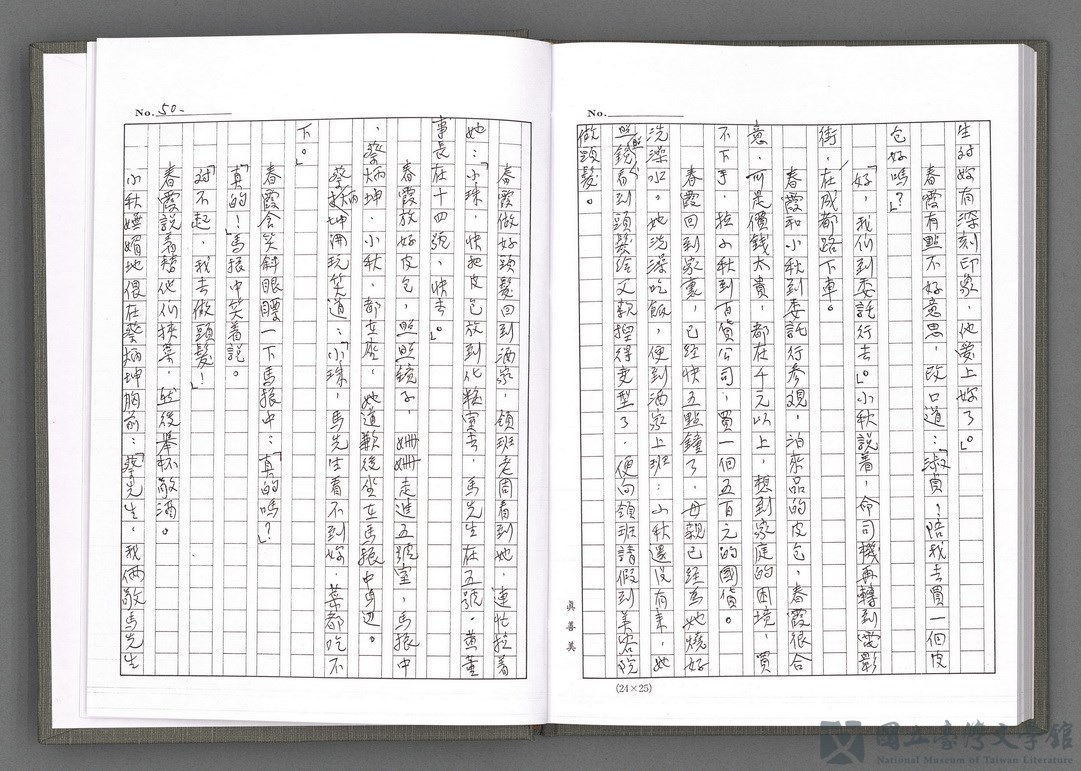 No.
生對妳有深刻印象，他愛上妳了」。
春霞有點不好意思，改口道：「淑貞！陪我去買一個皮
包好嗎？」
「好，我們到委託行去」。小秋說着，命司機再轉到電影
街，在成都路下車。
春霞和小秋到委託行參觀，泊來品的皮包，春霞很合
意，可是價錢太貴，都在千元以上，想到家庭的困境，買
不下手，拉小秋到百貨公司，買一個五百元的國貨。
春霞回到家裏，已經快五點鐘了，母親已經為她燒好
洗澡水。她洗澡吃飯，便到酒家上班：小秋還沒有來，她
照照鏡看到頭髮給父親摑得变型了，便向領班請假到美容院
做頭髮。
真善美
(24×25)
No. 50-
春霞做好頭髮回到酒家，領班老周看到她，連忙拉着
她：「小珠，快把皮包放到化粧室去，馬先生在五號，黄董
事長在十四號，快去」。
春霞放好皮包，照照鏡子，姍姍走進五號室，馬振中
、蔡炳坤、小秋，都在座，她道歉後坐在馬振中身边。
蔡炳坤開玩笑道：「小珠，馬先生看不到妳，菜都吃不
下」。
春霞含笑斜眼瞟一下馬振中：「真的嗎？」
「真的！」馬振中笑着說。
「对不起，我去做頭髮！」
春霞說着替他們挾菜，然後舉杯敬酒。
小秋嫵媚地偎在蔡炳坤胸前：「蔡先生，我倆敬馬先生
國立臺灣文學館
National Museum of Taiwan Literature